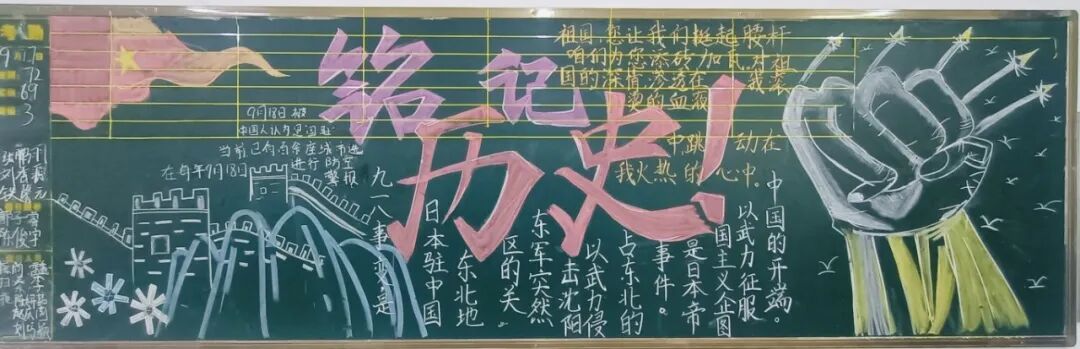 9月17
72
69
3
铭记
历史!
祖国,您让我们挺起腰杆
咱们为您添砖加瓦,对祖
国的深情渗透在 我装
烫的血液
中跳 动在
我火热的心中。
9月18日 被
中国人认为是国耻
当前已有百余座城市进
在每年9月18日 进行防空
警报
九一八事变是
日本驻中国
东北地
区的关
东军突然
击沈阳
以武力侵
占东北的
事件。
是日本帝
国主义企图
以武力征服
中国的开端。